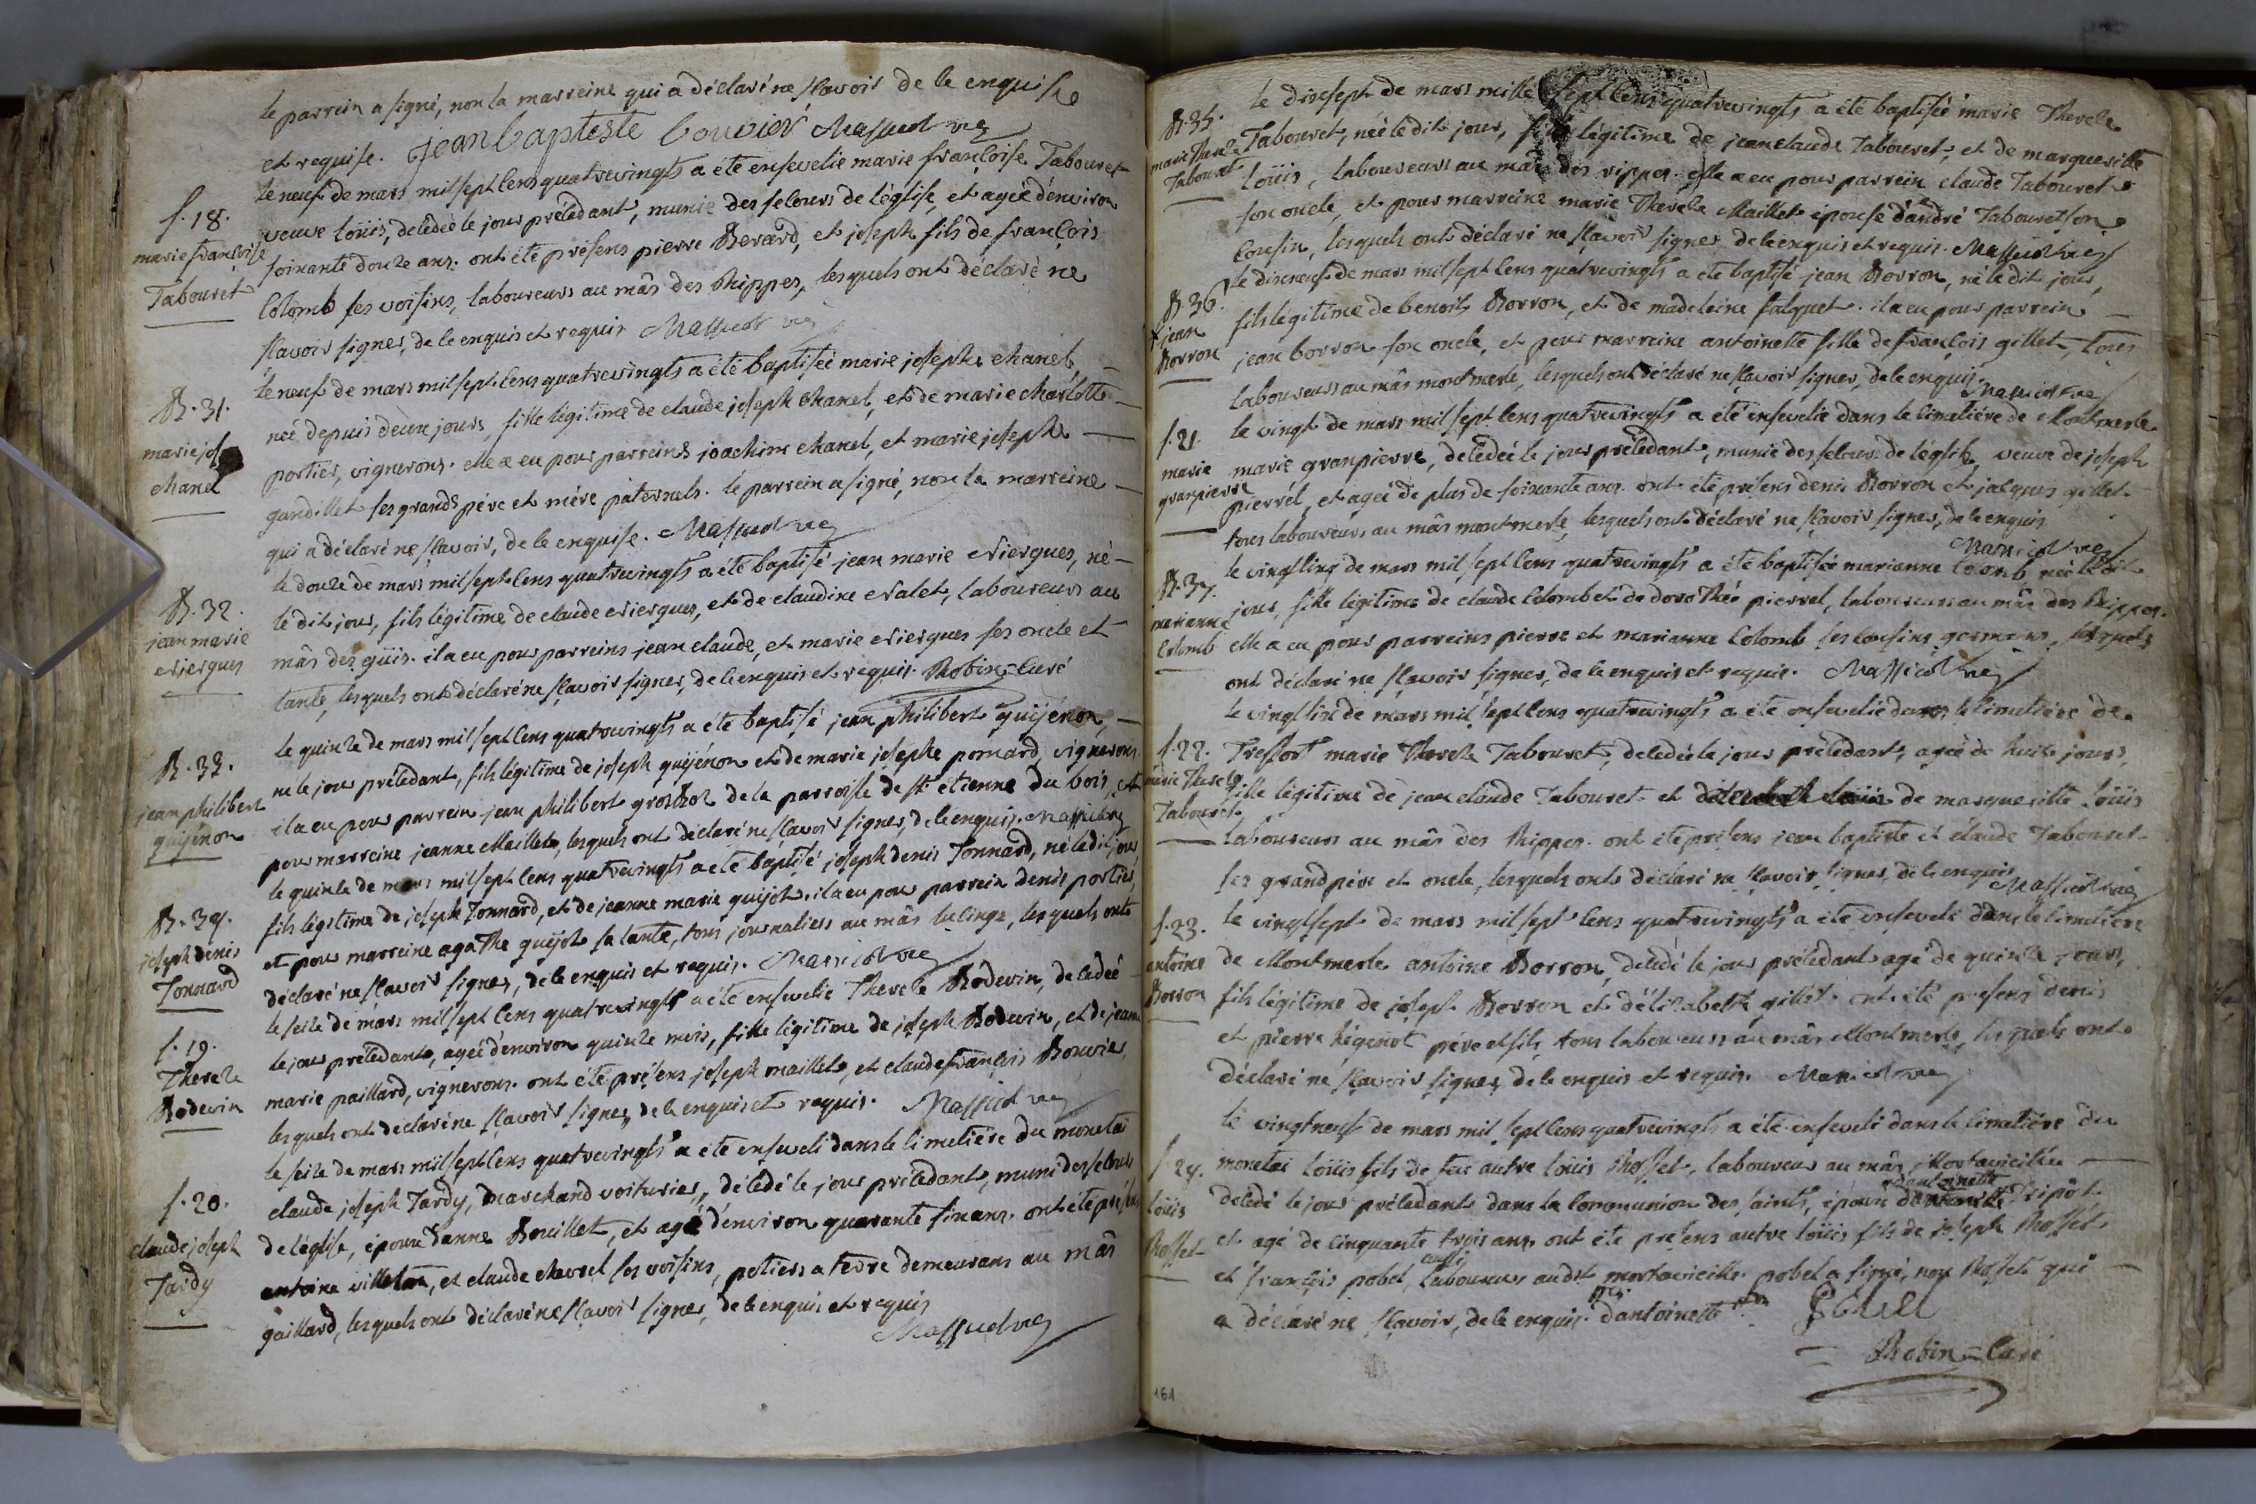 le parrein a signé, non la marreine qui a déclaré ne sçavoir de ce enquise
et requise. jean bapteste bouvier Massicot vic
S. 18.
marie françoise
Tabouret
le neuf de mars mil sept cens quatrevingts a été ensevelie marie françoise Tabouret
veuve loüis, décédée le jour précédant, munie des secours de l'église, et agée d'environ
soixante douze ans. ont été présens pierre Berard, et joseph fils de françois
Colomb ses voisins, laboureurs au mâs des Rippes, lesquels ont déclaré ne
sçavoir signer, de ce enquis et requis Massicot vic
B. 31.
marie jos
chanel
le neuf de mars mil sept cens quatrevingts a été baptisée marie josephe chanel,
née depuis deux jours, fille légitime de claude joseph chanel, et de marie charlotte
portier, vignerons. elle a eu pour parreins joachim chanel, et marie josephe
gandillet ses grands pére et mére paternels. le parrein a signé, non la marreine
qui a déclaré ne sçavoir, de ce enquise. Massicot vic
B. 32.
jean marie
niergues
le douze de mars mil sept cens quatrevingts a été baptisé jean marie niergues, né
le dit jour, fils légitime de claude niergues, et de claudine nalet, laboureurs au
mâs des guis. il a eu pour parreins jean claude, et marie niergues ses oncle et
tante, lesquels ont déclaré ne sçavoir signer, de ce enquis et requis. Robin = Curé
B. 33.
jean philibert
guijénon
le quinze de mars mil sept cens quatrevingts a été baptisé jean philibert guijénon,
né le jour précédant, fils légitime de joseph guijénon et de marie josephe pomard, vignerons.
il a eu pour parrein jean philibert de la parroisse de st. etienne du bois, et
pour marreine jeanne Maillet, lesquels ont déclaré ne sçavoir signer, de ce enquis. Massicot vic
B. 34.
joseph denis
Tonnard
le quinze de mars mil sept cens quatrevingts a été baptisé joseph denis Tonnard, né le dit jour
fils légitime de joseph Tonnard, et de jeanne marie guijot. il a eu pour parrein denis portier,
et pour marreine agathe guijot sa tante, tous journaliers au mâs lucinge, lesquels ont
déclaré ne sçavoir signer, de ce enquis et requis. Massicot vic
S. 19.
Therese
Bodevin
le seize de mars mil sept cens quatrevingts a été ensevelie Therese Bodevin, décédée
le jour précédant, agée d'environ quinze mois, fille légitime de joseph Bodevin, et de jeanne
marie paillard, vignerons. ont été présens joseph maillet, et claude françois Bouvier,
lesquels ont déclaré ne sçavoir signer, de ce enquis et requis. Massicot vic
S. 20.
claude joseph
Tardy
le seize de mars mil sept cens quatrevingts a été enseveli dans le cimetière du monetai
claude joseph Tardy, marchand voiturier, décédé le jour précédant, muni des secours
de l'église, époux d'anne Bouillet, et agé d'environ quarante six ans. ont été présens
antoine villeton, et claude chevrel ses voisins, potiers a terre demeurans au mâs
gaillard, lesquels ont déclaré ne sçavoir signer, de ce enquis et requis
Massicot vic
B. 35.
marie Therese
Tabouret
le dixsept de mars mille sept cens quatrevingts a été baptisée marie Therese
Tabouret, née le dit jour, fille légitime de jean claude Tabouret, et de marguerite
loüis, laboureurs au mâs des rippes. elle a eu pour parrein claude Tabouret
son oncle, et pour marreine marie Therese Maillet épouse d'andré Tabouret son
cousin, lesquels ont déclaré ne sçavoir signer, de ce enquis et requis. Massicot vic
B. 36.
jean
Borron
le dixneuf de mars mil sept cens quatrevingts a été baptisé jean Borron, né le dit jour,
fils légitime de benoit Borron, et de madeleine falquet. il a eu pour parrein
jean borron son oncle, et pour marreine antoinette fille de françois gillet, tous
laboureurs au mâs montmerle, lesquels ont déclaré ne sçavoir signer, de ce enquis
Massicot vic
S. 21.
marie
granpierre
le vingt de mars mil sept cens quatrevingts a été ensevelie dans le cimetière de Montmerle
marie granpierre, décédée le jour précédant, munie des secours de l'église, veuve de joseph
pierrel, et agée de plus de soixante ans. ont été présens denis Borron et jacques gillet
tous laboureurs au mâs montmerle, lesquels ont déclaré ne sçavoir signer, de ce enquis
Massicot vic
B. 37.
marianne
Colomb
le vingt cinq de mars mil sept cens quatrevingts a été baptisée marianne Colomb née le dit
jour, fille légitime de claude Colomb et de dorothée pierrel, laboureurs au mâs des Rippes.
elle a eu pour parreins pierre et marianne Colomb ses cousins germains, lesquels
ont déclaré ne sçavoir signer, de ce enquis et requis. Massicot vic
S. 22.
marie Therese
Tabouret
le vingt six de mars mil sept cens quatrevingts a été ensevelie dans le cimetière de
Tressort marie Therese Tabouret, décédée le jour précédant, agée de huit jours,
fille légitime de jean claude Tabouret et de marguerite loüis
laboureurs au mâs des Rippes. ont été présens jean baptiste et claude Tabouret
ses grand pére et oncle, lesquels ont déclaré ne sçavoir signer, de ce enquis
Massicot vic
S. 23.
antoine
Borron
le vingt sept de mars mil sept cens quatrevingts a été enseveli dans le cimetière
de Montmerle antoine Borron, décédé le jour précédant agé de quinze jours,
fils légitime de joseph Borron et d'élizabeth gillet. ont été présens denis
et pierre pére et fils, tous laboureurs au mâs Montmerle, lesquels ont
déclaré ne sçavoir signer, de ce enquis et requis. Massicot vic
S. 24.
loüis
Rosset
le vingtneuf de mars mil sept cens quatrevingts a été enseveli dans le cimetière du
monetai loüis fils de feu autre loüis Rosset, laboureur au mâs Mortavieille
décédé le jour précédant dans la communion des saints, époux d'antoinette Tripot
et agé de cinquante trois ans. ont été présens autre loüis fils de joseph Rosset
et françois pobel, aussi laboureurs audit mortavieille. pobel a signé, non Rosset qui
a déclaré ne sçavoir, de ce enquis. d'antoinette
Robin = Curé
161